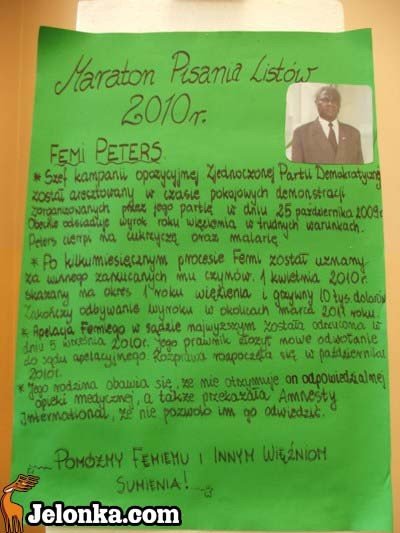 Maraton Pisania Listów
2010r.
FEMI PETERS
* Szef kampanii opozycyjnej Zjednoczonej Partii Demokratycznej
został aresztowany w czasie pokojowych demonstracji
zorganizowanych przez jego partię w dniu 25 października 2009r.
Obecnie odsiaduje wyrok roku więzienia w trudnych warunkach.
Peters cierpi na cukrzycę oraz malarię.
* Po kilkumiesięcznym procesie Femi został uznany
za winnego zarzucanych mu czynów. 1 kwietnia 2010r.
skazany na okres 1 roku więzienia i grzywny 10 tyś dolarów.
Zakończy odbywanie wyroku w okolicach marca 2011 roku.
* Apelacja Femiego w sądzie najwyższym została odrzucona w
dniu 5 września 2010r. Jego prawnik złożył nowe odwołanie
do sądu apelacyjnego. Rozprawa rozpoczęła się w październiku
2010r.
* Jego rodzina obawia się, że nie otrzymuje on odpowiedzialnej
opieki medycznej, a także przekazała Amnesty
International, że nie pozwolo im go odwiedzić.
POMÓŻMY FEMIEMU I INNYM WIĘŹNIOM
SUMIENIA!
Jelonka.com